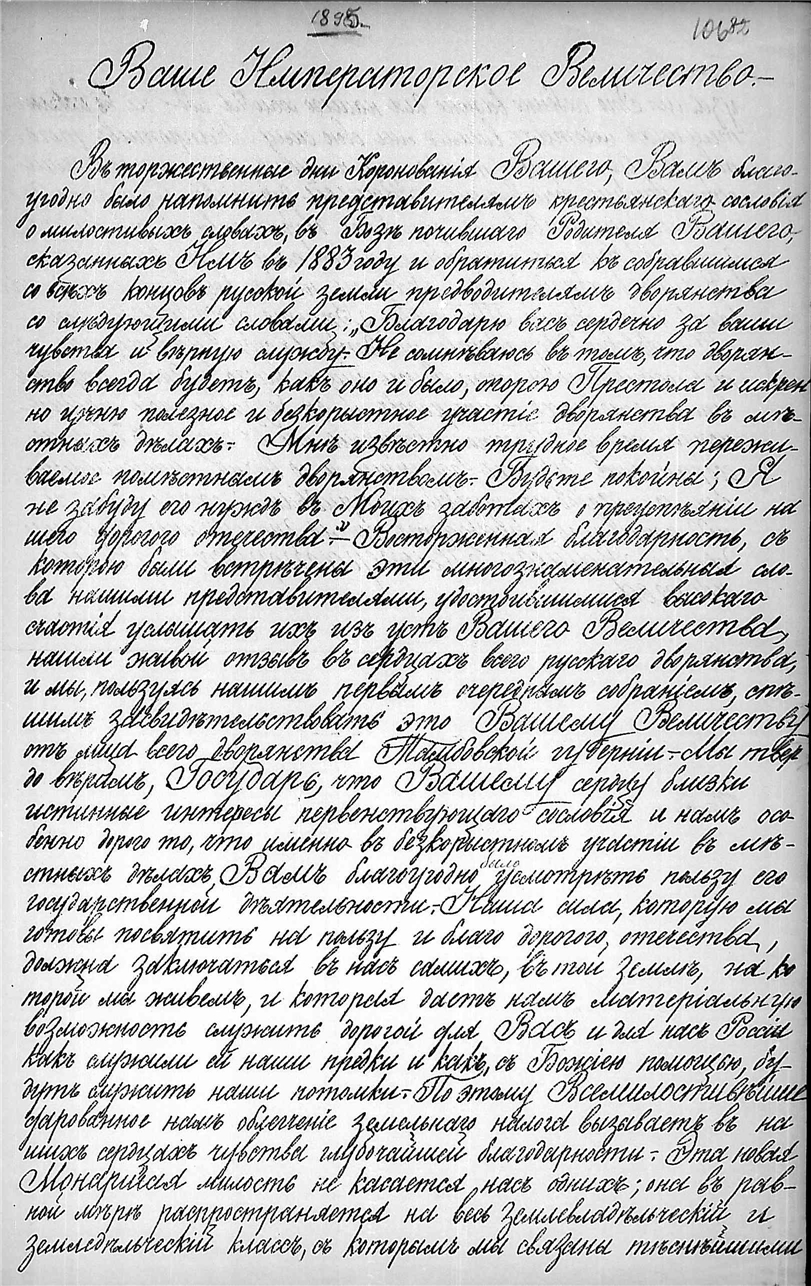 1895.
106 82
Ваше Императорское Величество.—
Въ торжественные дни Коронованія Вашего, Вамъ благо-
угодно было напомнить представителямъ крестьянскаго сословія
о милостивыхъ словахъ, въ Бозѣ почившаго Родителя Вашего,
сказанныхъ Имъ въ 1883 году и обратиться къ собравшимся
со всѣхъ концовъ русской земли предводителямъ дворянства
со слѣдующими словами: „Благодарю васъ сердечно за ваши
чувства и вѣрную службу.— Не сомнѣваюсь въ томъ, что дворян-
ство всегда будетъ, какъ оно и было, опорою Престола и искрен
но цѣню полезное и безкорыстное участіе дворянства въ мѣ-
стныхъ дѣлахъ.— Мнѣ извѣстно трудное время пережи-
ваемое помѣстнымъ дворянствомъ.— Будьте покойны; Я
не забуду его нуждъ въ Моихъ заботахъ о преуспѣяніи на
шего дорогого отечества".— Восторженная благодарность, съ
которою были встрѣчены эти многознаменательныя сло-
ва нашими представителями, удостоившимися высокаго
счастія услышать ихъ изъ устъ Вашего Величества,
нашли живой отзывъ въ сердцахъ всего русскаго дворянства,
и мы, пользуясь нашимъ первымъ очереднымъ собраніемъ, спѣ-
шимъ засвидѣтельствовать это Вашему Величеству
отъ лица всего дворянства Тамбовской губерніи.— Мы твер
до вѣримъ, Государь, что Вашему сердцу близки
истинные интересы первенствующаго сословія и намъ осо
бенно дорого то, что именно въ безкорыстномъ участіи въ мѣ-
стныхъ дѣлахъ, Вамъ благоугодно было усмотрѣть пользу его
государственной дѣятельности.— Наша сила, которую мы
готовы посвятить на пользу и благо дорогого, отечества,
должна заключаться въ насъ самихъ, въ той землѣ, на ко
торой мы живемъ, и которая даетъ намъ матеріальную
возможность служить дорогой для Васъ и для насъ Россіи
какъ служили ей наши предки и какъ, съ Божіею помощью, бу-
дутъ служить наши потомки.— Поэтому Всемилостивѣйше
дарованное намъ облегченіе земельнаго налога вызываетъ въ на
шихъ сердцахъ чувства глубочайшей благодарности.— Эта новая
Монаршая милость не касается, насъ однихъ; она въ рав-
ной мѣрѣ распространяется на весь землевладѣльческій и
земледѣльческій классъ, съ которымъ мы связаны тѣснѣйшими